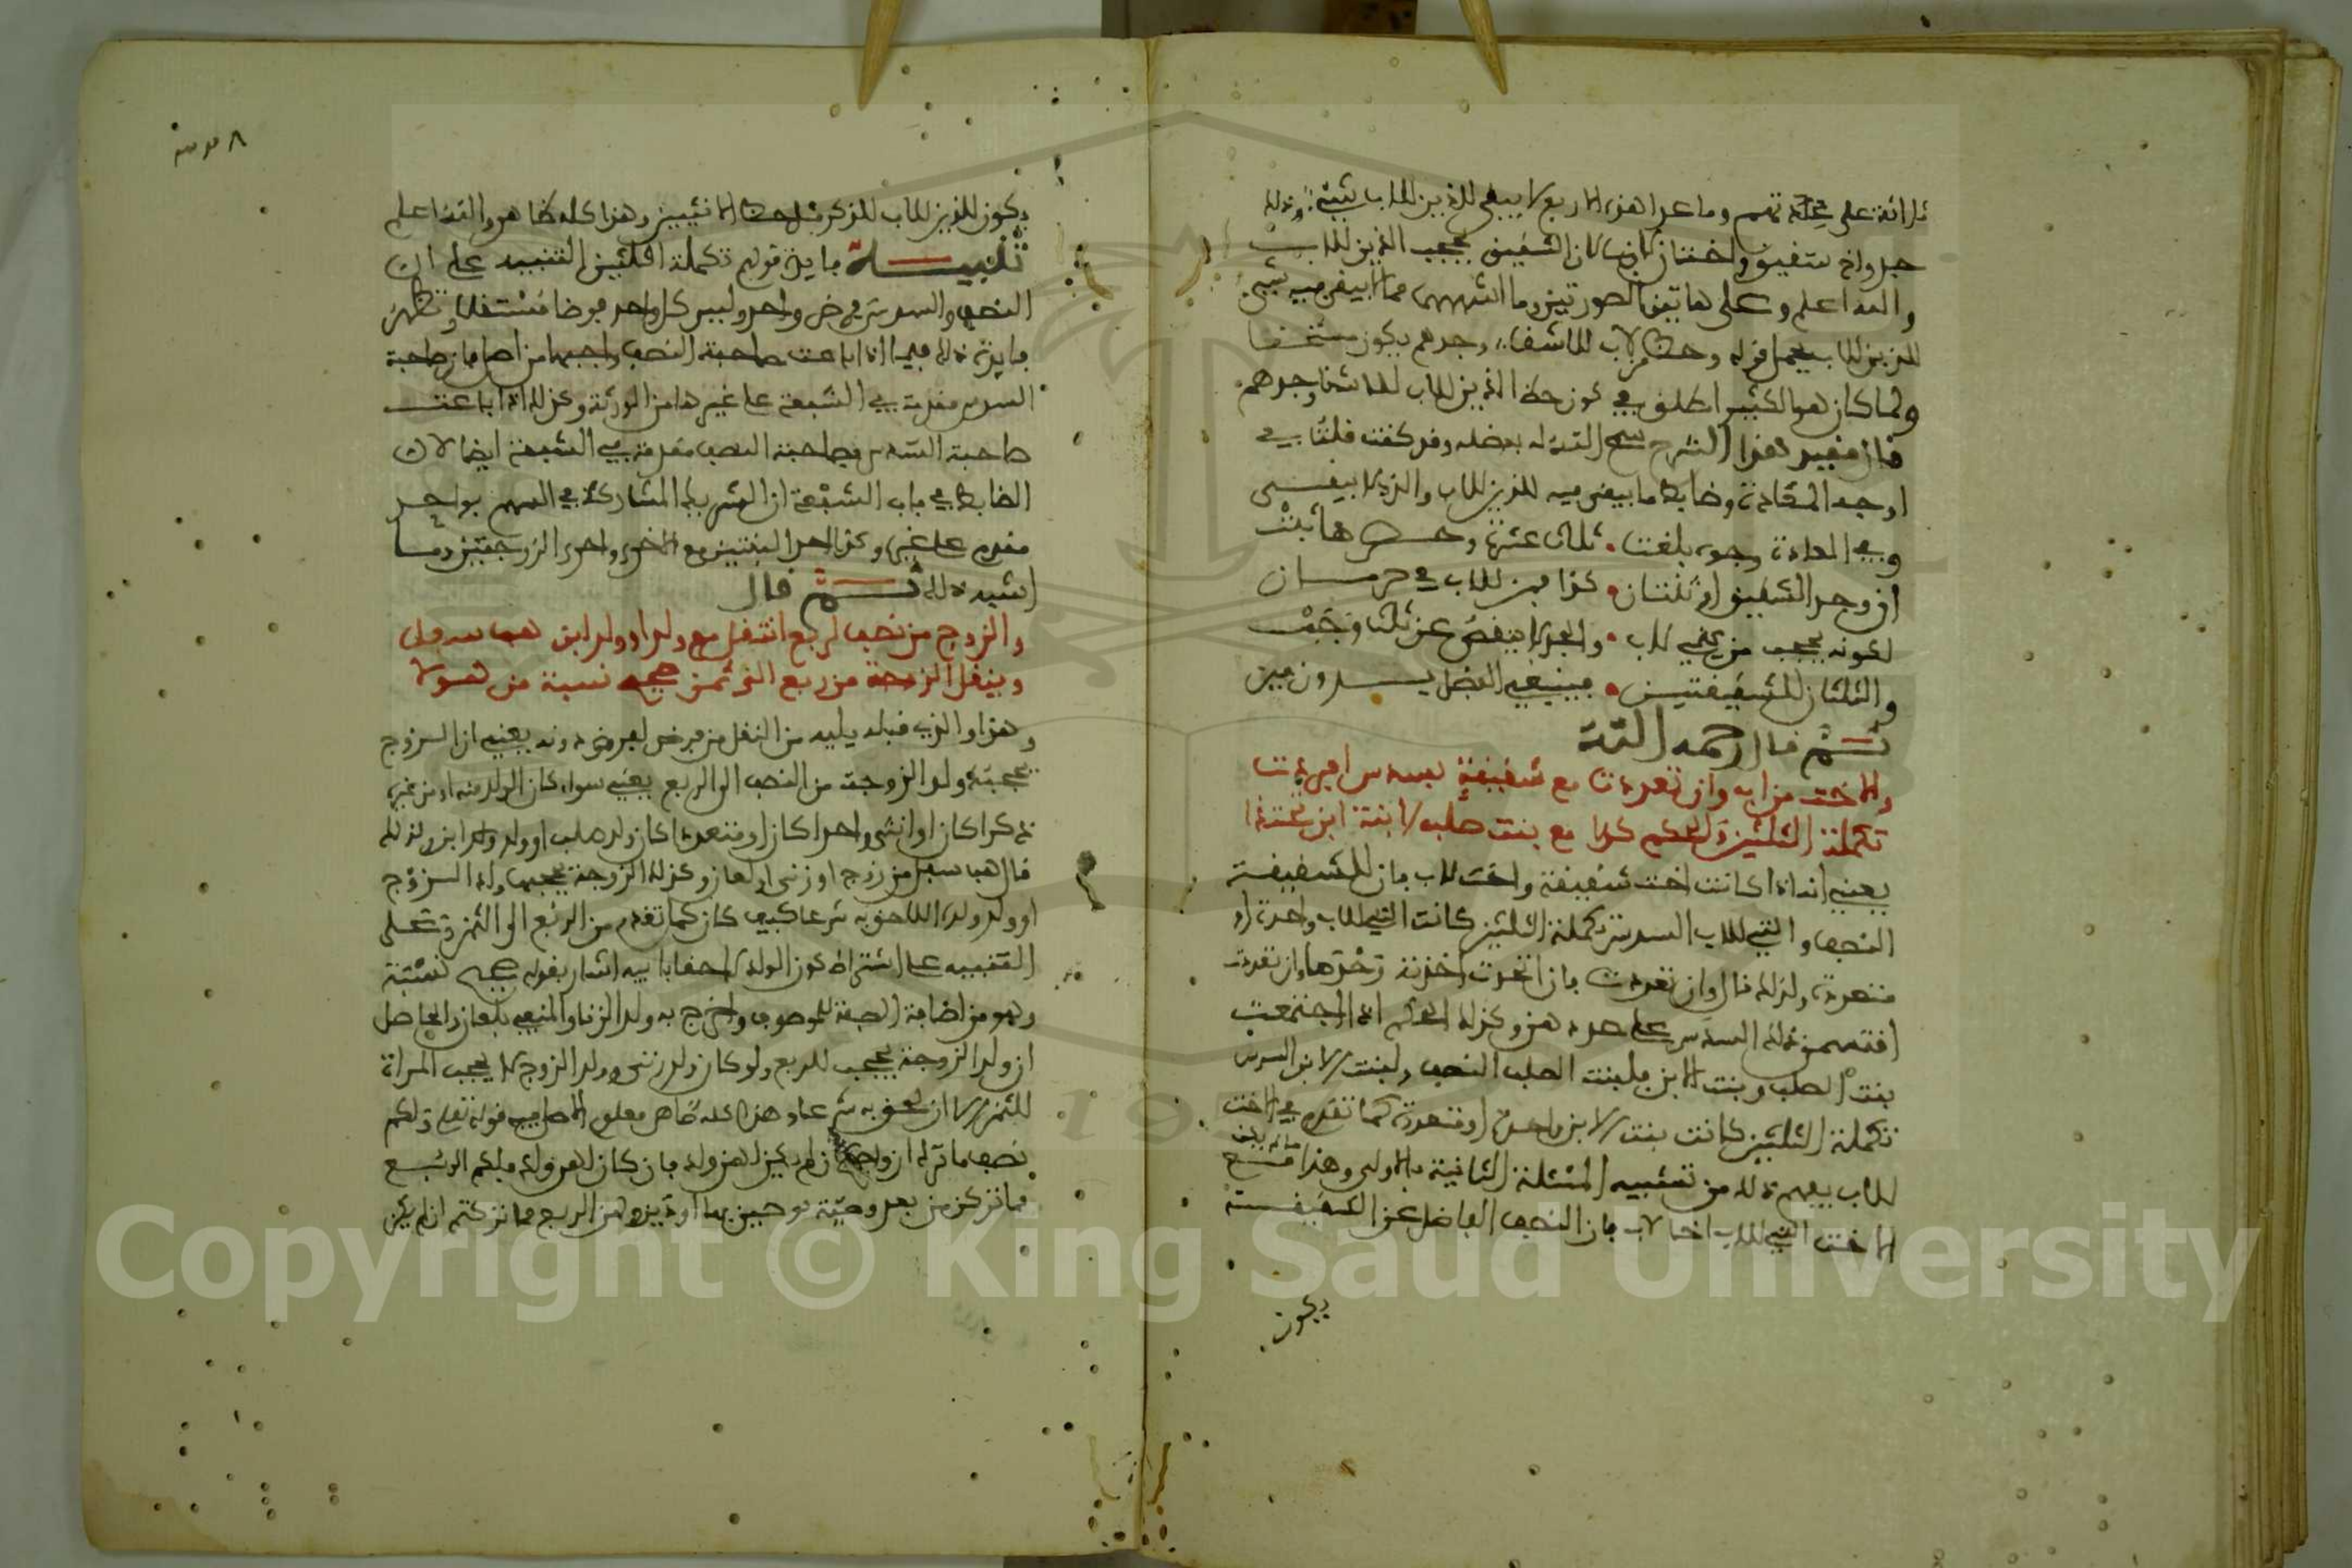 زائدة على تهم وما عدا هذه الاربع لا يبقى للذين للاب شيء وذلك
جد واخ شقيق واختان لاب لان الشقيق يحجب الذين للاب
والله اعلم وعلى هاتين الصورتين وما اشبههما مما لا يبقى فيه شيء
للذين للاب يحمل قوله وحظ من لاب للاشقاء وجدهم يكون مستحقا
ولما كان هو الكثير اطلق في كون حظ الذين للاب للاشقا وجدهم
قال مقيد هذا الشرح سمح الله له بفضله وقد كنت قلت في
اوجه المعادة وضابط ما يبقى فيه للذين للاب والذي لا يبقى
وفي المعادة وجوه بلغت ثلاث عشرة وحصرها ثبت
ان وجد الشقيق او ثنتان كذا فمن للاب في حرمان
لكونه يحجب من يجي لاب والجد لا ينقص عن ثلث وجب
والثلثان للشقيقتين فينبغي الفضل دون مين
ثم قال رحمه الله
والاخت من اب وان تعددت مع شقيقة بسدس افردت
تكملة الثلثين والحكم كذا مع بنت صلب لابنة ابن تحتذا
يعني انه اذا كانت اخت شقيقة واخت لاب فان للشقيقة
النصف والتي للاب السدس تكملة الثلثين كانت التي للاب واحدة او
متعددة ولذلك قال وان تعددت فان اتحدت اخذته وحدها وان تعددت
اقتسمن ذلك السدس على عددهن وكذلك الحكم اذا اجتمعت
بنت الصلب وبنت الابن فلبنت الصلب النصف ولبنت الابن السدس
تكملة الثلثين كانت بنت الابن واحدة او متعددة كما تقدم في الاخت
للاب يفهم ذلك من تشبيه المسئلة الثانية بالاولى وهذا ما لم يكن مع
الاخت التي للاب اخ لاب فان النصف الفاضل عن الشقيقة
يكون
يكون للذين للاب للذكر مثل حظ الانثيين وهذا كله ظاهر والله اعلم
تنبيه فايدة قولهم تكملة الثلثين التنبيه على ان
النصف والسدس فرض واحد وليس كل واحد فرضا مستقلا وتظهر
فايدة ذلك فيما اذا باعت صاحبة النصف واجبها من اصل فان صاحبة
السدس مقدمة في الشفعة على غيرها من الورثة وكذلك اذا باعت
صاحبة السدس فصاحبة النصف مقدمة في الشفعة ايضا لان
الضابط في باب الشفعة ان الشريك المشارك في السهم بواحد
مقدم على غيره وكذا احد البنتين مع الاخرى واحدى الزوجتين وما
اشبه ذلك ثم قال
والزوج من نصف لربع انتقل مع ولد او ولد ابن هب سفل
وينقل الزوجة من ربع الى ثمن صحيح نسبة من هولا
وهذا والذي قبله يليه من النقل من فرض لفرض دونه يعني ان الزوج
يحجبه ولد الزوجة من النصف الى الربع يعني سواء كان الولد منه او من غيره
ذكرا كان او انثى واحدا كان او متعددا كان ولد صلب او ولد ولد ابن ولذلك
قال هب سفل من زوج او زنى او لعان وكذلك الزوجة يحجبها ولد الزوج
او ولد ولده اللاحق به شرعا كيف كان كما تقدم من الربع الى الثمن وعلى
التنبيه على اشتراط كون الولد لاحقا بابيه اشار بقوله صحيح نسبة
وهو من اضافة الصفة للموصوف واخرج به ولد الزنا والمنفي بلعان والحاصل
ان ولد الزوجة يحجب للربع ولو كان ولد زنى وولد الزوج لا يحجب المراة
للثمن الا ان لحق به شرعا وهذا كله ظاهر معلوم الاصل فيه قوله تعالى ولكم
نصف ما ترك ازواجكم ان لم يكن لهن ولد فان كان لهن ولد فلكم الربع
مما تركن من بعد وصية يوصين بها او دين ولهن الربع مما تركتم ان لم يكن